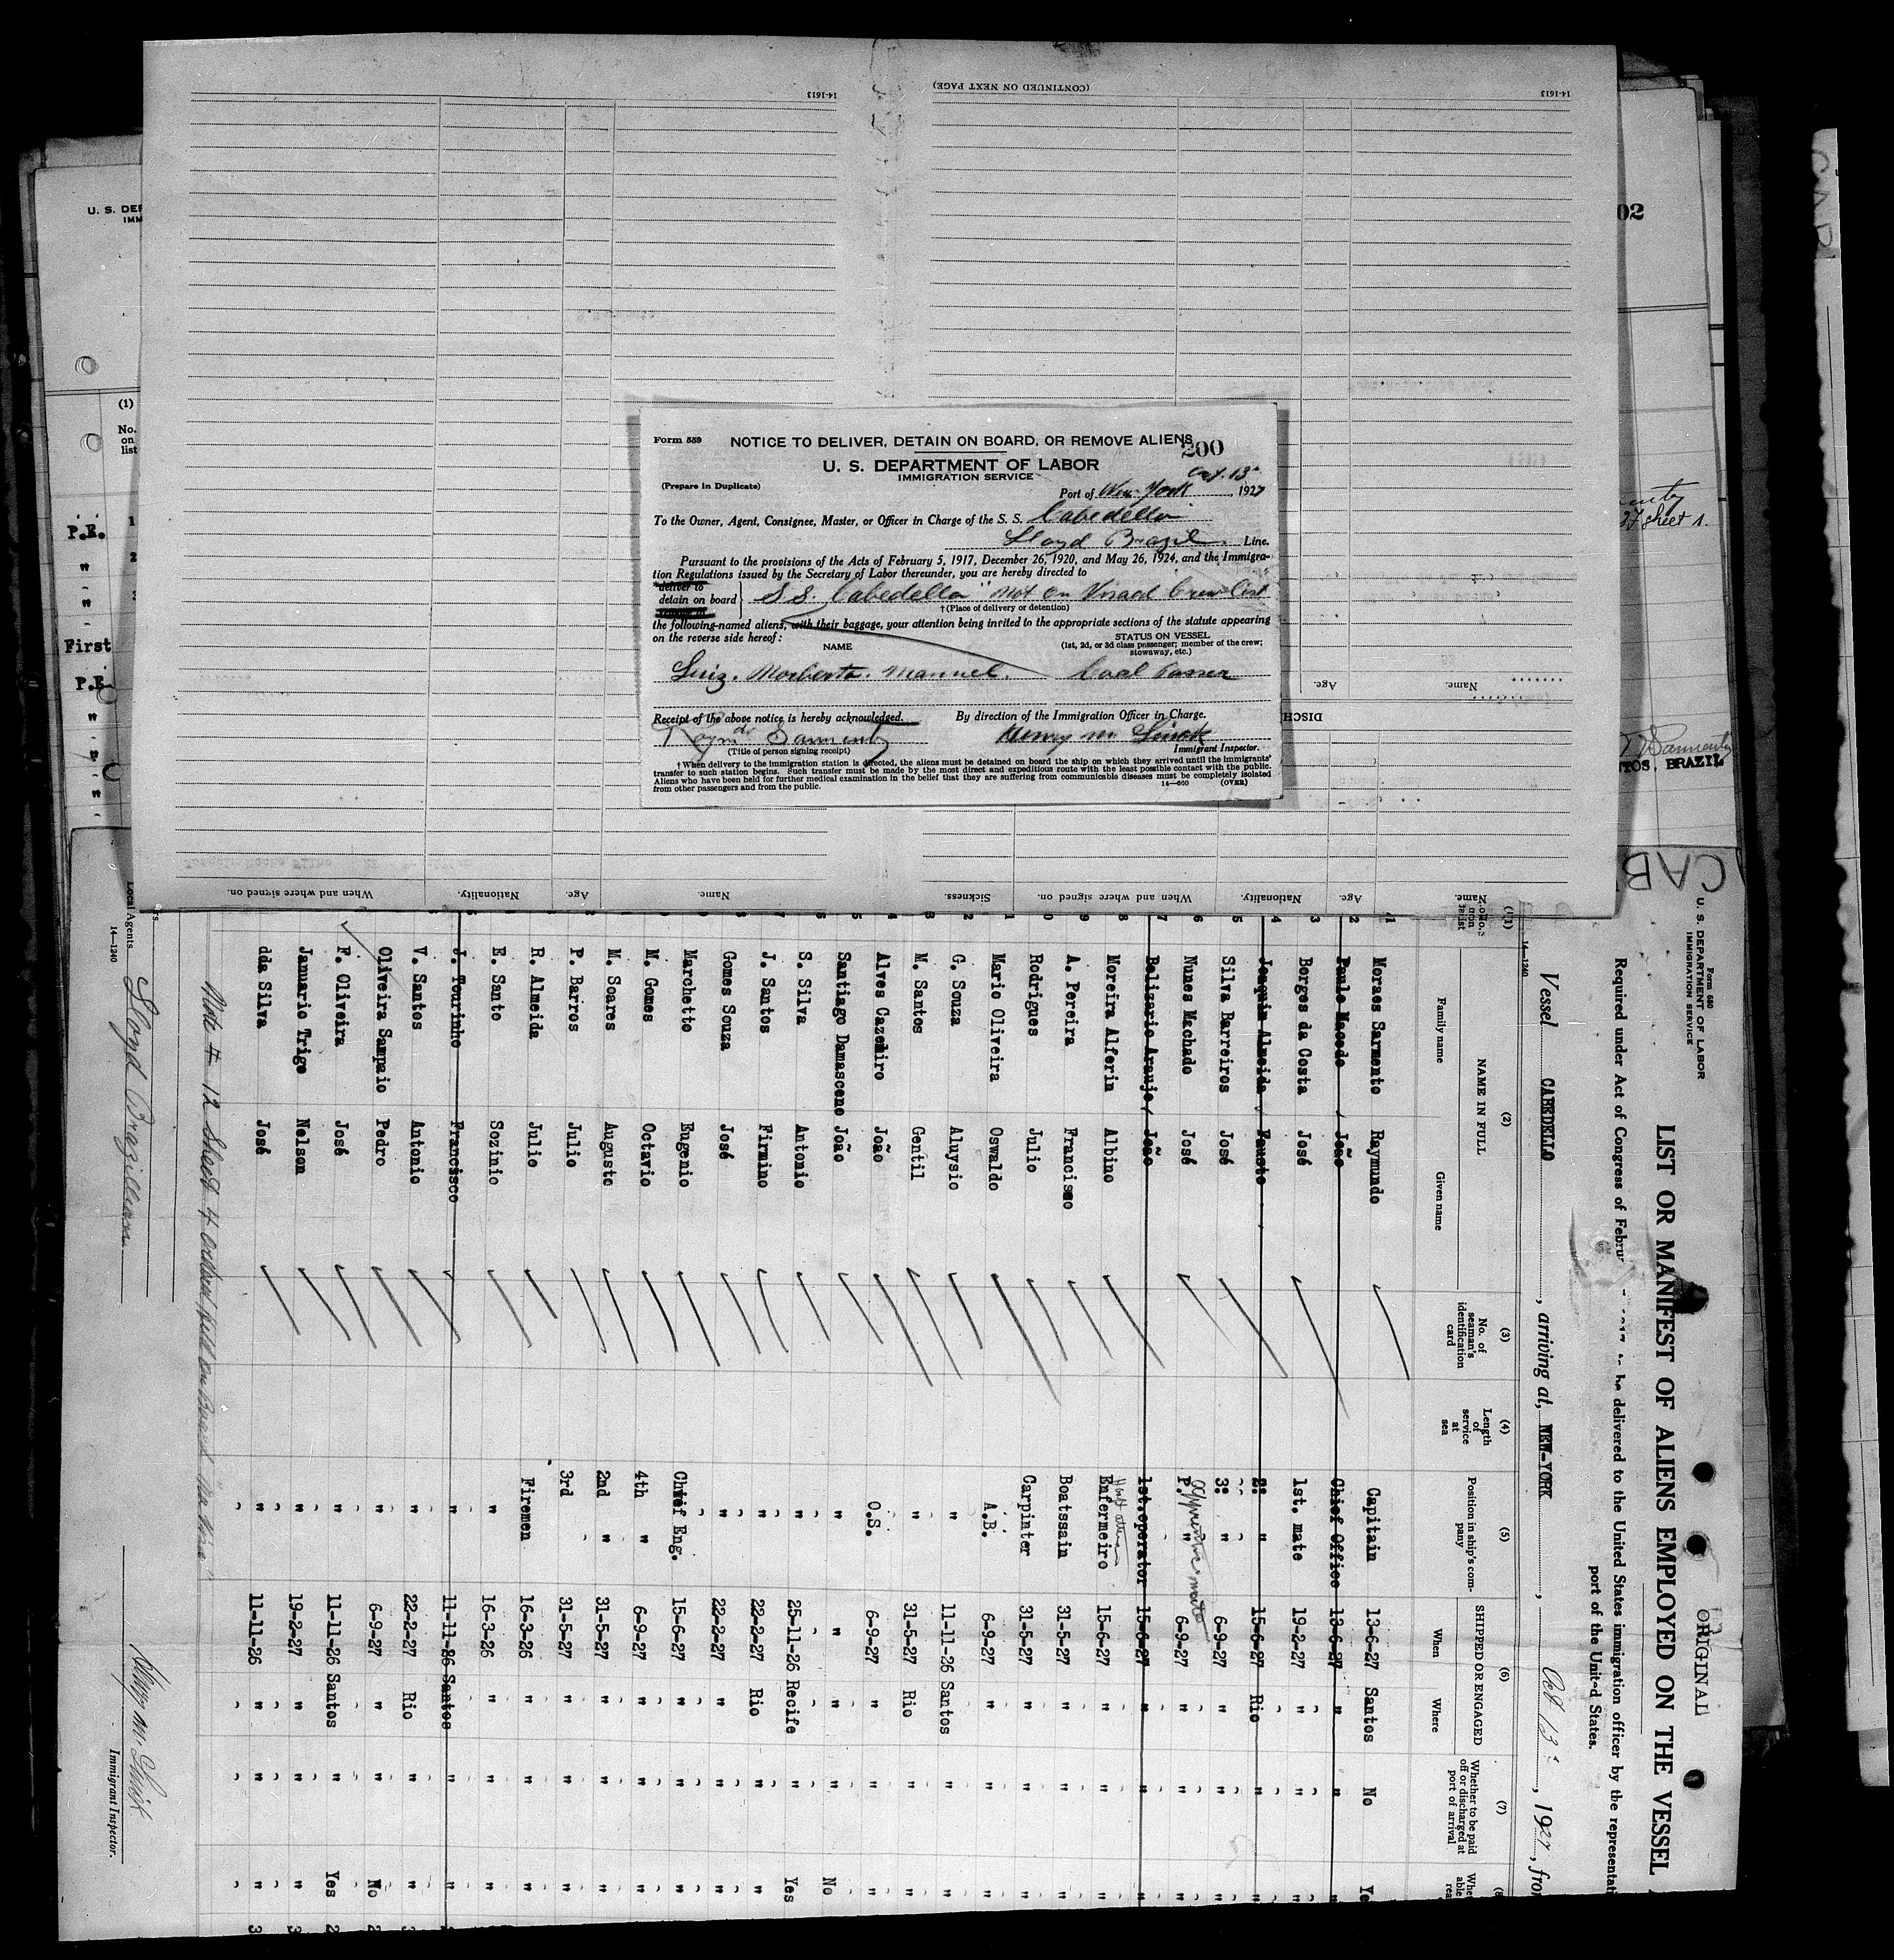 (CONTINUED ON NEXT PAGE)
14-1613
14-1613
U. S. DEP
IMM
02
Form 559 NOTICE TO DELIVER, DETAIN ON BOARD, OR REMOVE ALIENS
200
U. S. DEPARTMENT OF LABOR
IMMIGRATION SERVICE
Oct. 13
(Prepare in Duplicate)
Port of New York, 1927
To the Owner, Agent, Consignee, Master, or Officer in Charge of the S. S. Cabedello
Lloyd Brazil Line.
Pursuant to the provisions of the Acts of February 5, 1917, December 26, 1920, and May 26, 1924, and the Immigra-
tion Regulations issued by the Secretary of Labor thereunder, you are hereby directed to
deliver to
detain on board
S.S. Cabedello "not on Visaed Crew List
†(Place of delivery or detention)
the following-named aliens, with their baggage, your attention being invited to the appropriate sections of the statute appearing
on the reverse side hereof:
STATUS ON VESSEL
(1st, 2d, or 3d class passenger; member of the crew;
stowaway, etc.)
NAME
Luiz. Norberto. Manuel. Coal Passer
Receipt of the above notice is hereby acknowledged.
By direction of the Immigration Officer in Charge.
Raym do Sarmento
Henry M
(Title of person signing receipt)
Immigrant Inspector.
†When delivery to the immigration station is directed, the aliens must be detained on board the ship on which they arrived until the immigrants'
transfer to such station begins. Such transfer must be made by the most direct and expeditious route with the least possible contact with the public.
Aliens who have been held for further medical examination in the belief that they are suffering from communicable diseases must be completely isolated
from other passengers and from the public.
14—660 (OVER)
Name.
Age.
DISCH
When and where signed on.
Nationality.
Age.
Name.
Sickness.
When and where signed on.
Nationality.
Age.
Name.
(1)
No.
on
list
P.E.
"
"
"
First
P.E.
"
"
"
"
sheet 1.
Sarmento
TOS, BRAZIL
CAB
Form 680
U. S. DEPARTMENT OF LABOR
IMMIGRATION SERVICE
ORIGINAL
LIST OR MANIFEST OF ALIENS EMPLOYED ON THE VESSEL
Required under Act of Congress of Februar 1917, to be delivered to the United States immigration officer by the representati
port of the United States.
Vessel CABEDELLO, arriving at, NEW-YORK, Oct 13, 1927, from
14—1240
(1) No. on list
(2) NAME IN FULL
Family name Given name
(3) No. of seaman's identification card
(4) Length of service at sea
(5) Position in ship's company
(6) SHIPPED OR ENGAGED
When Where
(7) Whether to be paid off or discharged at port of arrival
1 Moraes Sarmento Raymundo Capitain 13-6-27 Santos No Ye
2 Paulo Macedo João Chief Office 13-6-27 " "
3 Borges da Costa José 1st. mate 19-2-27 " "
4 Joaquim Almeida Fausto 2: " 15-6-27 Rio "
5 Silva Barreiros José 3: " 6-9-27 " "
6 Nunes Machado José P. " Apprentice mate 6-9-27 " "
7 Belizario Araujo João 1st.operator 15-6-27 " "
8 Moreira Alferin Albino Enfermeiro 15-6-27 " "
9 A. Pereira Francismo Boatssain 31-5-27 " "
0 Rodrigues Julio Carpinter 31-5-27 " "
1 Mario Oliveira Oswaldo A.B. 6-9-27 " "
2 G. Souza Aluysio " 11-11-26 Santos "
3 M. Santos Gentil " 31-5-27 Rio "
4 Alves Cazemiro João O.S. 6-9-27 " "
5 Santiago Damasceno João " " " " No
6 S. Silva Antonio " 25-11-26 Recife " Yes
7 J. Santos Firmino " 22-2-27 Rio " "
8 Gomes Souza José " 22-2-27 " " "
9 Marchetto Eugenio Chief Eng. 15-6-27 " " "
M. Gomes Octavio 4th " 6-9-27 " " "
M. Soares Augusto 2nd " 31-5-27 " " "
P. Barros Julio 3rd 31-5-27 " " "
R. Almeida Julio Firemen 16-3-26 " " "
E. Santo Sozinio " 16-3-26 " " "
J. Tourinho Francisco " 11-11-26 Santos " "
V. Santos Antonio " 22-2-27 Rio " "
Oliveira Sampaio Pedro " 6-9-27 " " No 2
F. Oliveira José " 11-11-26 Santos " Yes 2
Januario Trigo Nelson " 19-2-27 " " " 3
dda Silva José " 11-11-26 " " " 3
Note # 12 Sheet 4 ordered held on Board
Lloyd Brazilian
Local Agents
14—1240
Henry M.
Immigrant Inspector.